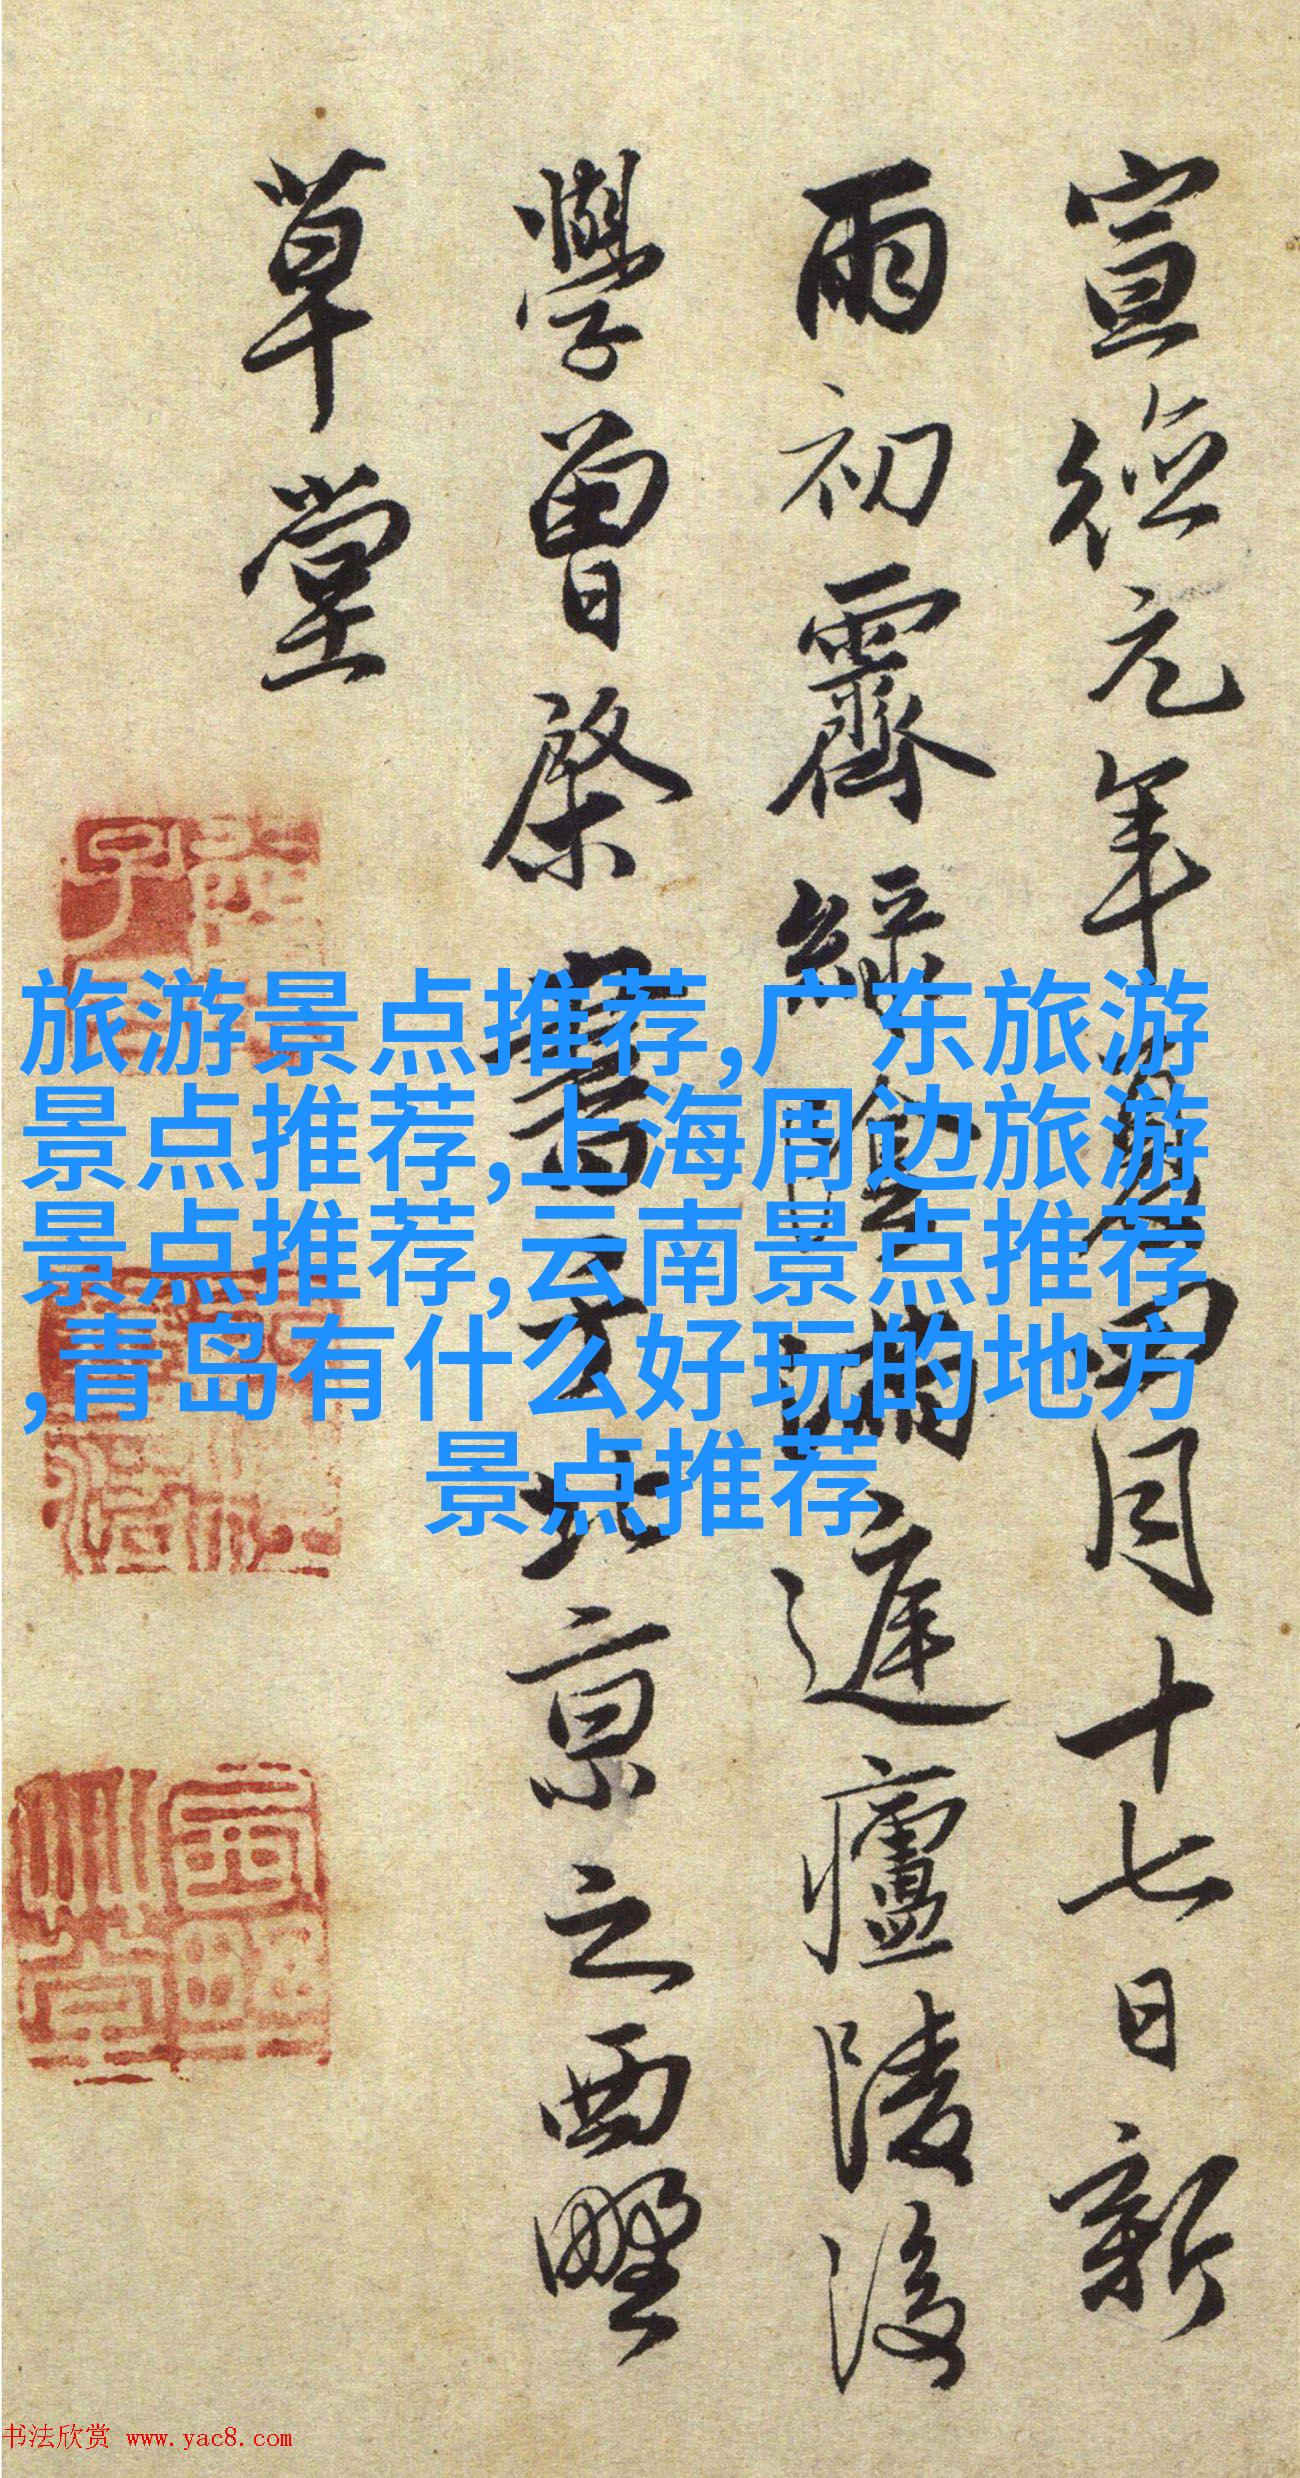 宣德元年夏四月十七日新
雨初霽綠陰滿庭廬陵後
學曾棨書于北京之西墅
草堂
旅游景点推荐,广东旅游
景点推荐,上海周边旅游
景点推荐,云南景点推荐
,青岛有什么好玩的地方
景点推荐
书法欣赏 www.yac8.com